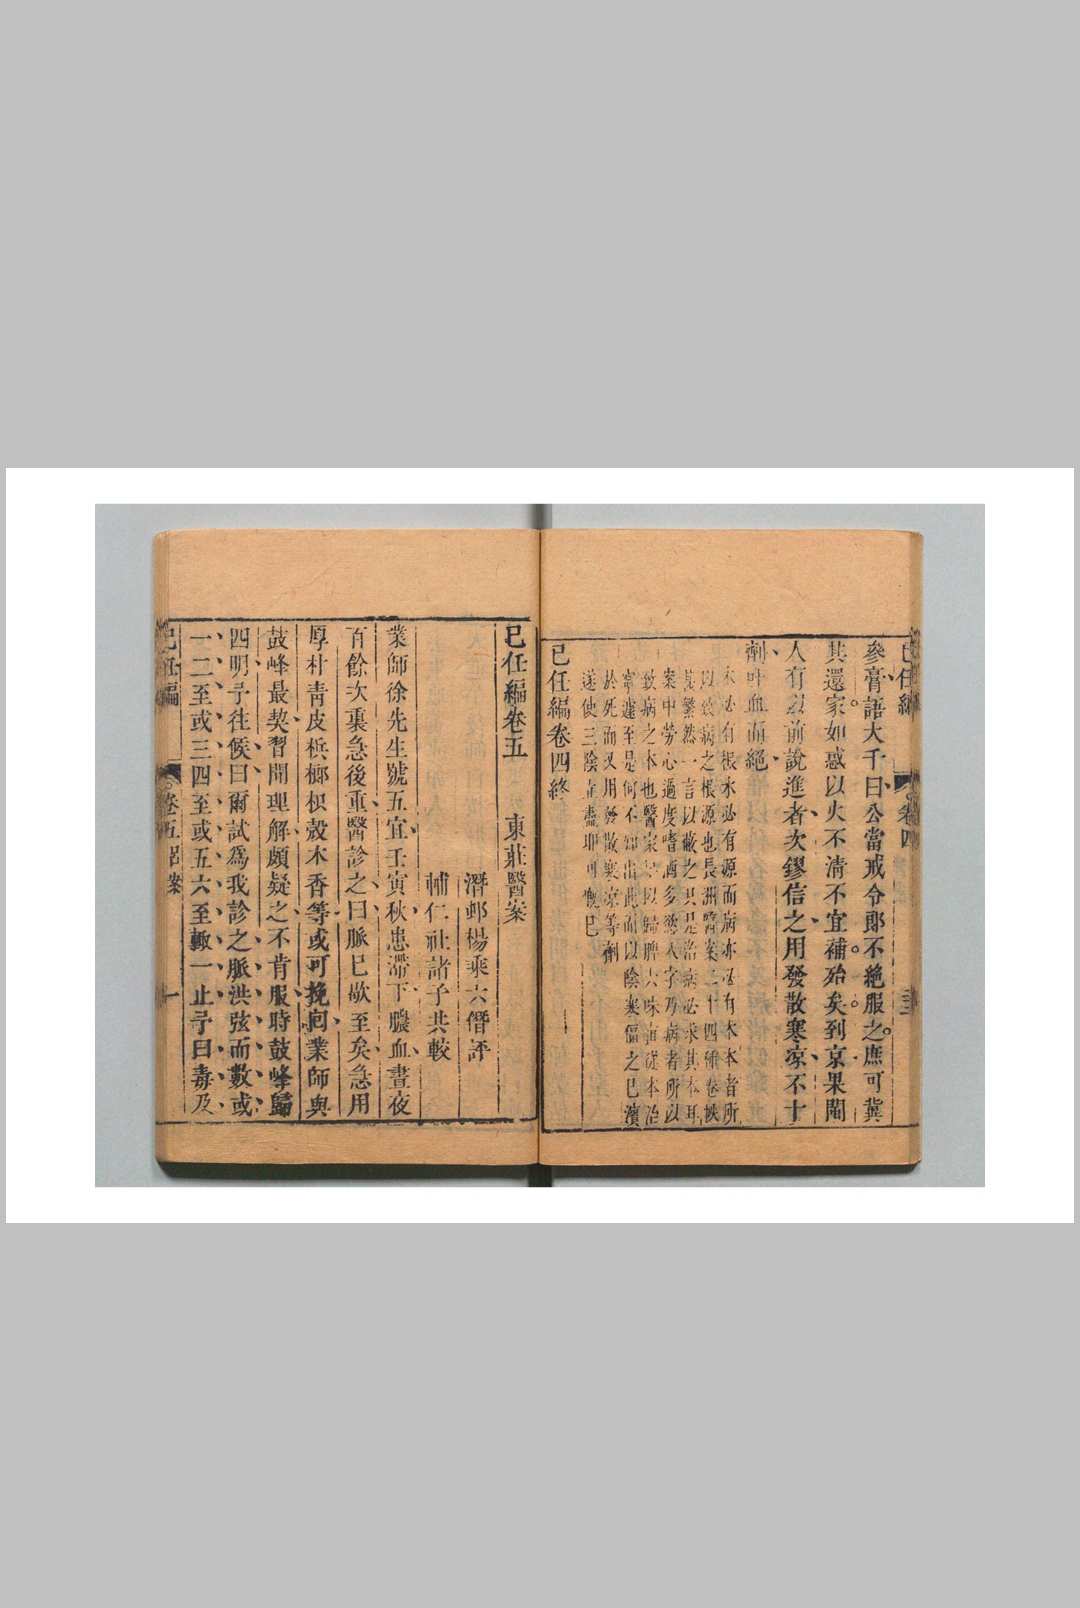 己任編
卷四
參膏語大千曰公當戒令郎不絶服之庶可冀
其還家如惑以火不清不宜補殆矣到京果聞
人有以前說進者次鏐信之用發散寒凉不十
劑吐血而絕
木必有根水必有源而病亦必有本本者所
以致病之根源也長洲醫案二十四種卷帙
甚繁然一言以蔽之只是治病必求其本耳
案中勞心過度嗜酒多慾八字乃病者所以
致病之本也醫家只以歸脾六味由從本治
寧遽至是何不知出此而以陰寒傷之已瀕
於死而又用發散寒凉等劑
遂使三陰並盡耶可慨已
己任編卷四終
己任編卷五
東莊醫案
潛邨楊乘六僭評
輔仁社諸子共較
業師徐先生號五宜壬寅秋患滯下膿血晝夜
百餘次裏急後重醫診之曰脈已歇至矣急用
厚朴靑皮梹榔枳殼木香等或可挽囘業師與
鼓峰最契習聞理解頗疑之不肯服時鼓峰歸
四明予往候曰爾試爲我診之脈洪弦而數或
一二至或三四至或五六至輙一止予曰毒及
己任編
卷五呂案
一